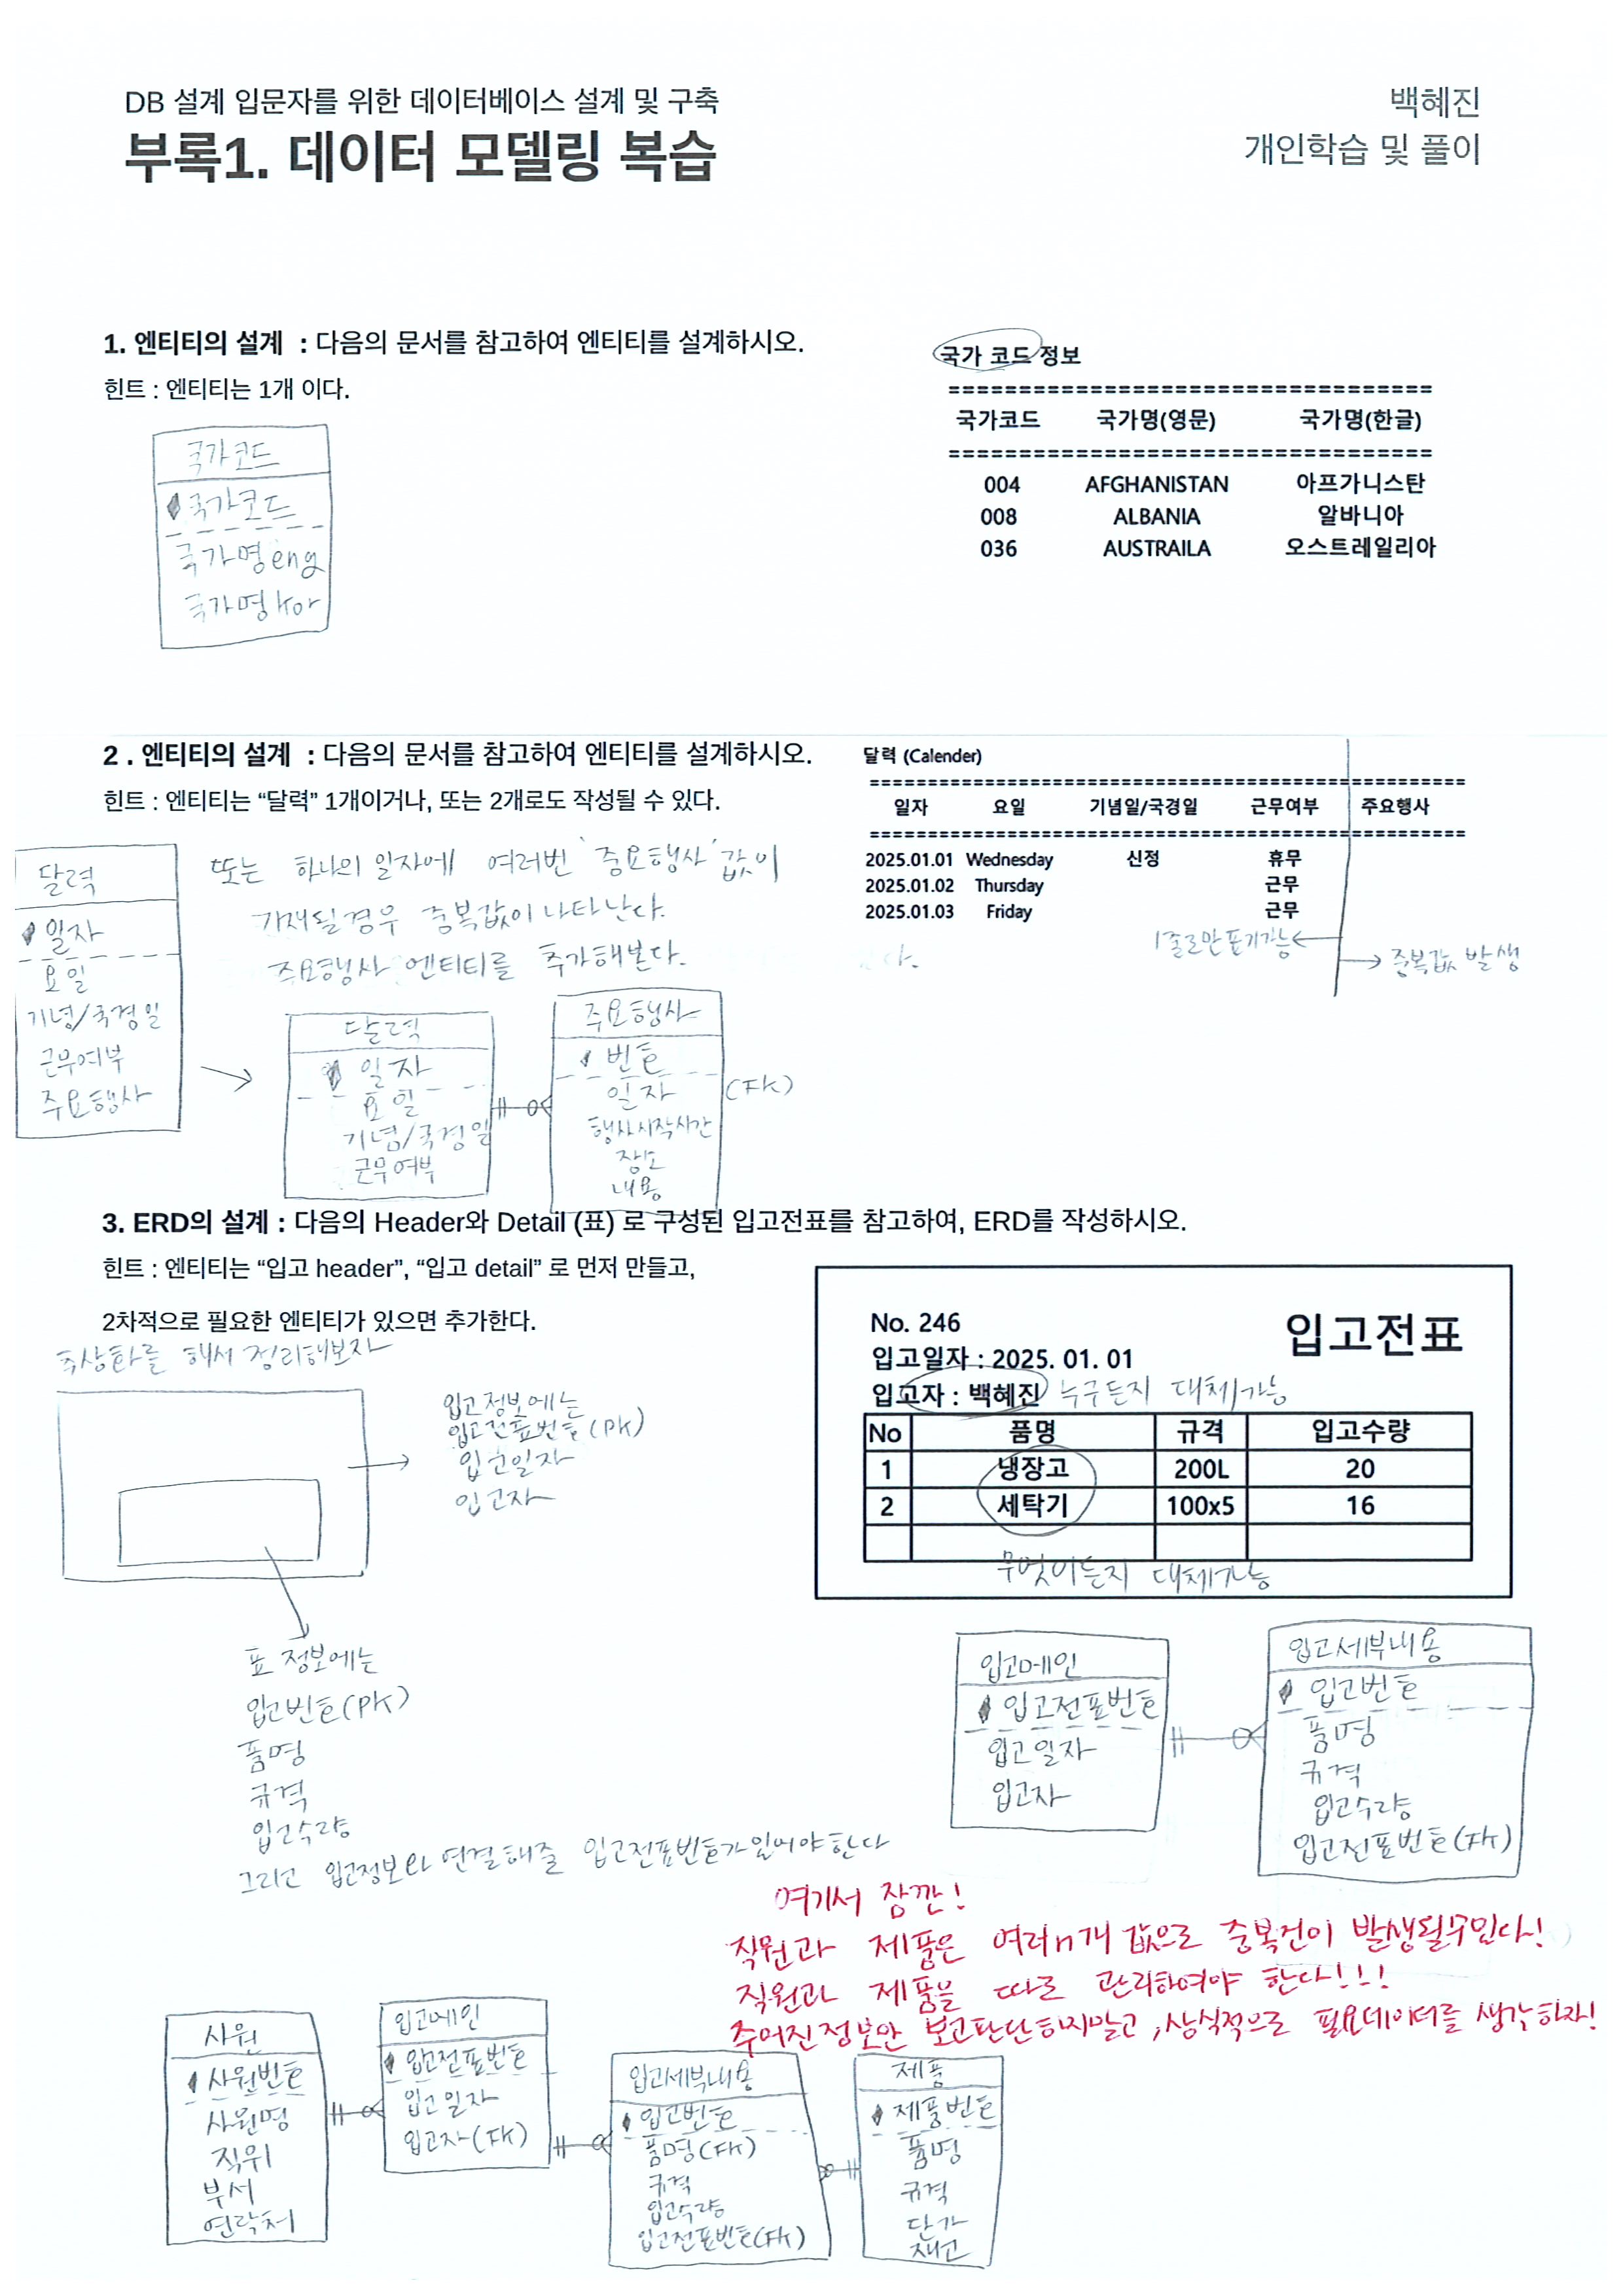 DB 설계 입문자를 위한 데이터베이스 설계 및 구축
부록1. 데이터 모델링 복습
백혜진
개인학습 및 풀이
1. 엔티티의 설계 : 다음의 문서를 참고하여 엔티티를 설계하시오.
힌트 : 엔티티는 1개 이다.
국가코드
국가코드
국가명eng
국가명kor
국가 코드 정보
==================================
국가코드 국가명(영문) 국가명(한글)
==================================
004 AFGHANISTAN 아프가니스탄
008 ALBANIA 알바니아
036 AUSTRAILA 오스트레일리아
2 . 엔티티의 설계 : 다음의 문서를 참고하여 엔티티를 설계하시오.
힌트 : 엔티티는 “달력” 1개이거나, 또는 2개로도 작성될 수 있다.
달력 (Calender)
일자 요일 기념일/국경일 근무여부 주요행사
2025.01.01 Wednesday 신정 휴무
2025.01.02 Thursday 근무
2025.01.03 Friday 근무
1줄로만 표기가능
중복값 발생
달력
일자
요일
기념/국경일
근무여부
주요행사
또는 하나의 일자에 여러번 '주요행사' 값이
기재될경우 중복값이 나타난다.
주요행사 엔티티를 추가해본다.
다.
달력
일자
요일
기념/국경일
근무여부
주요행사
번호
일자 (FK)
행사시작시간
장소
내용
3. ERD의 설계 : 다음의 Header와 Detail (표) 로 구성된 입고전표를 참고하여, ERD를 작성하시오.
힌트 : 엔티티는 “입고 header”, “입고 detail” 로 먼저 만들고,
2차적으로 필요한 엔티티가 있으면 추가한다.
추상화를 해서 정리해보자
입고정보에는
입고전표번호(PK)
입고일자
입고자
표 정보에는
입고번호(PK)
품명
규격
입고수량
그리고 입고정보와 연결해줄 입고전표번호가있어야한다
No. 246
입고전표
입고일자 : 2025. 01. 01
입고자 : 백혜진 누구든지 대체가능
No 품명 규격 입고수량
1 냉장고 200L 20
2 세탁기 100x5 16
무엇이든지 대체가능
입고메인
입고전표번호
입고일자
입고자
입고세부내용
입고번호
품명
규격
입고수량
입고전표번호(FK)
여기서 잠깐!
직원과 제품은 여러n개 값으로 중복건이 발생될수있다!
직원과 제품을 따로 관리하여야 한다!!!
주어진정보만 보고판단하지말고, 상식적으로 필요데이터를 생각하자!
사원
사원번호
사원명
직위
부서
연락처
입고메인
입고전표번호
입고일자
입고자(FK)
입고세부내용
입고번호
품명(FK)
규격
입고수량
입고전표번호(FK)
제품
제품번호
품명
규격
단가
재고